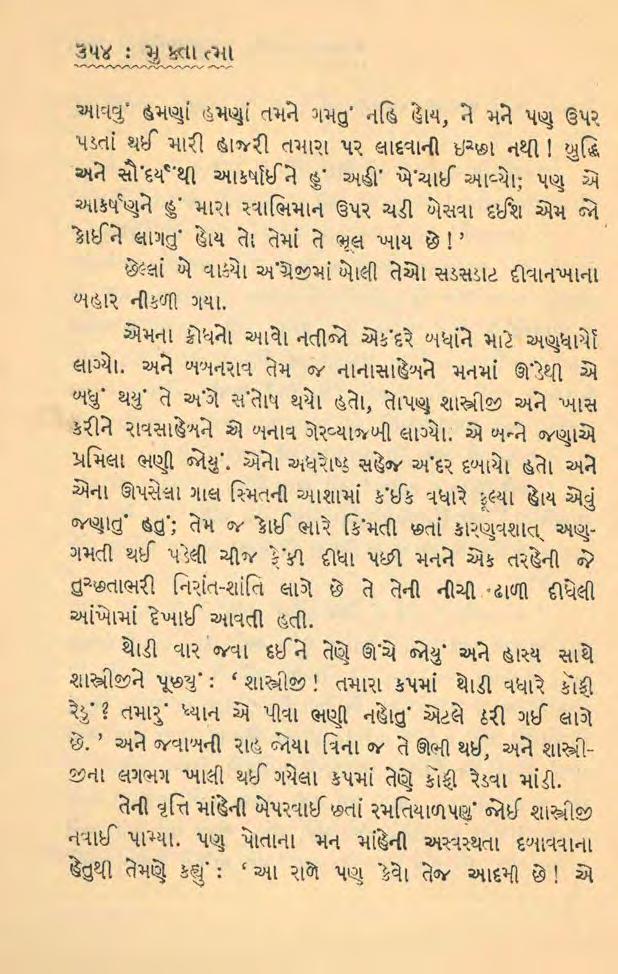 ૩૫૪ : મુ ક્તા ત્મા
આવવું હમણાં હમણાં તમને ગમતું નહિ હોય, ને મને પણ ઉપર
પડતાં થઈ મારી હાજરી તમારા પર લાદવાની ઇચ્છા નથી ! બુદ્ધિ
અને સૌંદર્યથી આકર્ષાઈને હું અહીં ખેંચાઈ આવ્યો; પણ એ
આકર્ષણને હું મારા સ્વાભિમાન ઉપર ચડી બેસવા દઈશ એમ જો
કોઈને લાગતું હોય તો તેમાં તે ભૂલ ખાય છે ! ’
છેલ્લાં બે વાક્યો અંગ્રેજીમાં બોલી તેઓ સડસડાટ દીવાનખાના
બહાર નીકળી ગયા.
એમના ક્રોધનો આવો નતીજો એકંદરે બધાંને માટે અણધાર્યો
લાગ્યો. અને બબનરાવ તેમ જ નાનાસાહેબને મનમાં ઊંડેથી એ
બધું થયું તે અંગે સંતોષ થયો હતો, તોપણ શાસ્ત્રીજી અને ખાસ
કરીને રાવસાહેબને એ બનાવ ગેરવ્યાજબી લાગ્યો. એ બન્ને જણાએ
પ્રમિલા ભણી જોયું. એનો અધરોષ્ઠ સહેજ અંદર દબાયો હતો અને
એના ઊપસેલા ગાલ સ્મિતની આશામાં કંઈક વધારે ફૂલ્યા હોય એવું
જણાતું હતું; તેમ જ કોઈ ભારે કિંમતી છતાં કારણવશાત્ અણ-
ગમતી થઈ પડેલી ચીજ ફેંકી દીધા પછી મનને એક તરહેની જે
તુચ્છતાભરી નિરાંત-શાંતિ લાગે છે તે તેની નીચી ઢાળી દીધેલી
આંખોમાં દેખાઈ આવતી હતી.
થોડી વાર જવા દઈને તેણે ઊંચે જોયું અને હાસ્ય સાથે
શાસ્ત્રીજીને પૂછ્યું : ‘ શાસ્ત્રીજી ! તમારા કપમાં થોડી વધારે કૉફી
રેડું ? તમારું ધ્યાન એ પીવા ભણી નહોતું એટલે ઠરી ગઈ લાગે
છે. ’ અને જવાબની રાહ જોયા વિના જ તે ઊભી થઈ, અને શાસ્ત્રી-
જીના લગભગ ખાલી થઈ ગયેલા કપમાં તેણે કૉફી રેડવા માંડી.
તેની વૃત્તિ માંહેની બેપરવાઈ છતાં રમતિયાળપણું જોઈ શાસ્ત્રીજી
નવાઈ પામ્યા. પણ પોતાના મન માંહેની અસ્વસ્થતા દબાવવાના
હેતુથી તેમણે કહ્યું : ‘ આ રાળે પણ કેવો તેજ આદમી છે ! એ